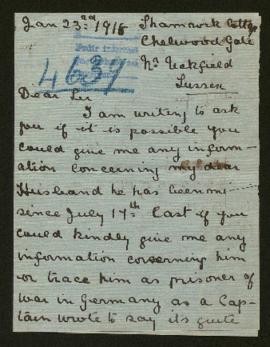 Jan 23rd 1916 Shamrock Cottge
Chelwood Gate
Nr Uckfield
Sussex
4637
Dear Sir
I am writing to ask
you if it is possible you
could give me any inform-
ation concerning my dear
Husband he has been mi
since July 17th last if you
could kindly give me any
information concerning him
or trace him as prisoner of
war in Germany as a Cap-
tain wrote to say its quite